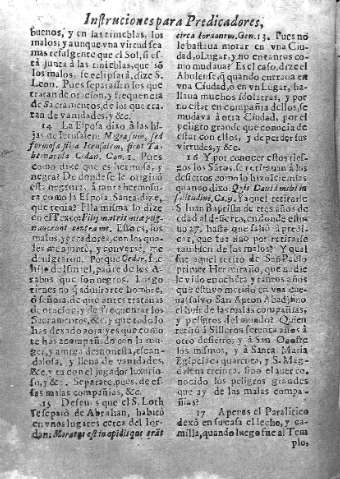 Instruciones para Predicadores,
buenos, y en las tinieblas, los
malos; y aunque una virtud sea
mas refulgente que el Sol, si es-
tà junta à las tinieblas, que sõ
los malos, se eclipsarà, dize S.
Leon. Pues separadlos los que
tratan de oraciõ, y frequencia
de Sacramentos, de los que tra-
tan de vanidades, y &c.
14 La Esposa dixo à las hi-
jas de Ierusalem: Nigra sum, sed
formosa filiæ Ierusalem, sicut Ta-
bernacula Cedar, Can. 1. Pues
como dize que es hermosa, y
negra? De donde se le originò
esta negrura, à tanta hermosu-
ra como la Esposa Santa dize,
que tenia? Ella misma lo dize
en el Texto: Filij matris meæ pug-
naverunt contra me. Estos, los
malos, y pecadores, con los qua-
les me juntè, y conversè, me
denegrieron. Por que Cedar, fue
hijo de Ismael, padre de los A-
rabes, que son negros. Luego
tienes no
ò señora, de que antes tratavas
de oracion, y de frequentar los
Sacramentos, &c. y que todo lo
has dexado
te has acompañado con la mu-
ger, y amiga deshonesta, escan-
dalosa, y llena de vanidades,
&c. y tu con el jugador luxurio-
so, &c. Separate, pues, de es-
sas malas compañias, &c.
15 Despues que el S. Loth
se separò de Abrahan, habitò
en unos lugares cerca del Ior-
dan: Moratus est in oppidis quæ erãt
circa Iordanem, Gen. 13. Pues no
le bastava morar en una Ciu-
dad, ò Lugar, y no en tantos co-
mo mudava? Es el caso, dize el
Abulense, q̃ quando entrava en
una Ciudad, ò en un Lugar, ha-
llava muchos idolatras, y por
no estar en compañia dellos, se
mudava à otra Ciudad, por el
peligro grande que conocia de
estar con ellos, y de perder sus
virtudes, y &c.
16 Y por conocer estos ries-
gos los Santos, se retiraron à los
desiertos
quando dixo: Quis
solitudine, Ca. 9. Y aquel retirarse
S. Iuan Baptista de tres años de
edad al desierto, en donde estu-
vo 27. hasta que saliò à predi-
car, que fue sino por retirarse
tambien de los malos? Y qual
fue aquel retiro de San Pablo
primer Hermitaño, que nadie
le viò en ochenta y tantos años
que estuvo metido en una cue-
va, salvo San Anton Abad, sino
el huir de las malas compañias,
y peligros del mundo? Quien
retirò à
otro desierto; y à San Onofre
los mismos, y à Santa Maria
Egipciaca quarenta, y à S. Ma-
gdalena treinta, sino el aver co-
nocido los peligros grandes
que ay de las malas compa-
ñias?
17 Apenas el Paralitico
dexò en su casa el lecho, y ca-
milla, quando luego fue al Tem
plo,